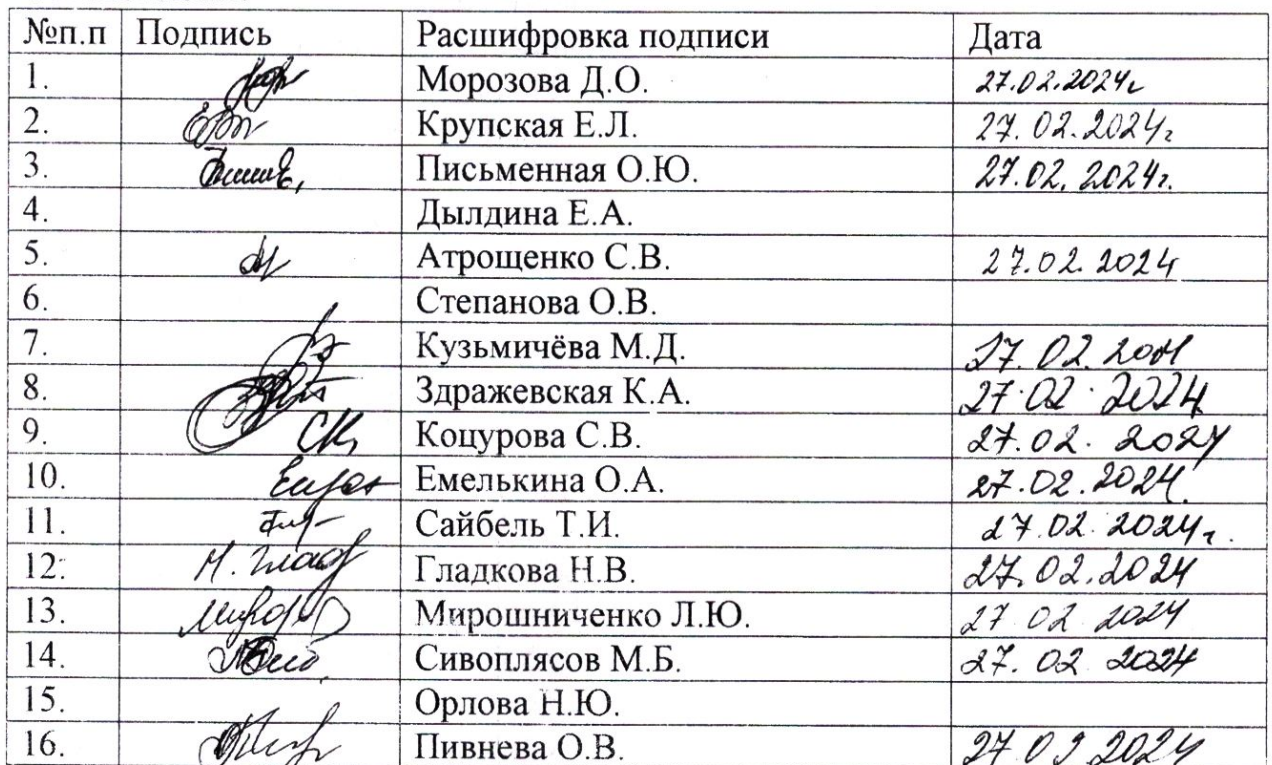 №п.п Подпись Расшифровка подписи Дата
1. Морозова Д.О. 27.02.2024г
2. Крупская Е.Л. 27.02.2024г
3. Письменная О.Ю. 27.02.2024г.
4. Дылдина Е.А.
5. Атрощенко С.В. 27.02.2024
6. Степанова О.В.
7. Кузьмичёва М.Д. 27.02.2024
8. Здражевская К.А. 27.02.2024
9. СК Коцурова С.В. 27.02.2024
10. Емелькина О.А. 27.02.2024
11. Сайбель Т.И. 27.02.2024г.
12. Гладкова Н.В. 27.02.2024
13. Мирошниченко Л.Ю. 27 02 2024
14. Сивоплясов М.Б. 27.02 2024
15. Орлова Н.Ю.
16. Пивнева О.В. 27.02 2024